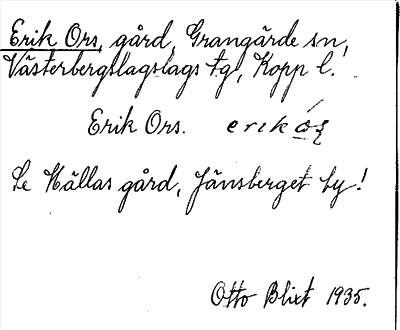 Erik Ors, gård, Grangärde sn,
Västerbergslagslags tgl, Kopp l.
Erik Ors. erik
Se Hällas gård, Jänsberget by!
Otto Blixt 1935.